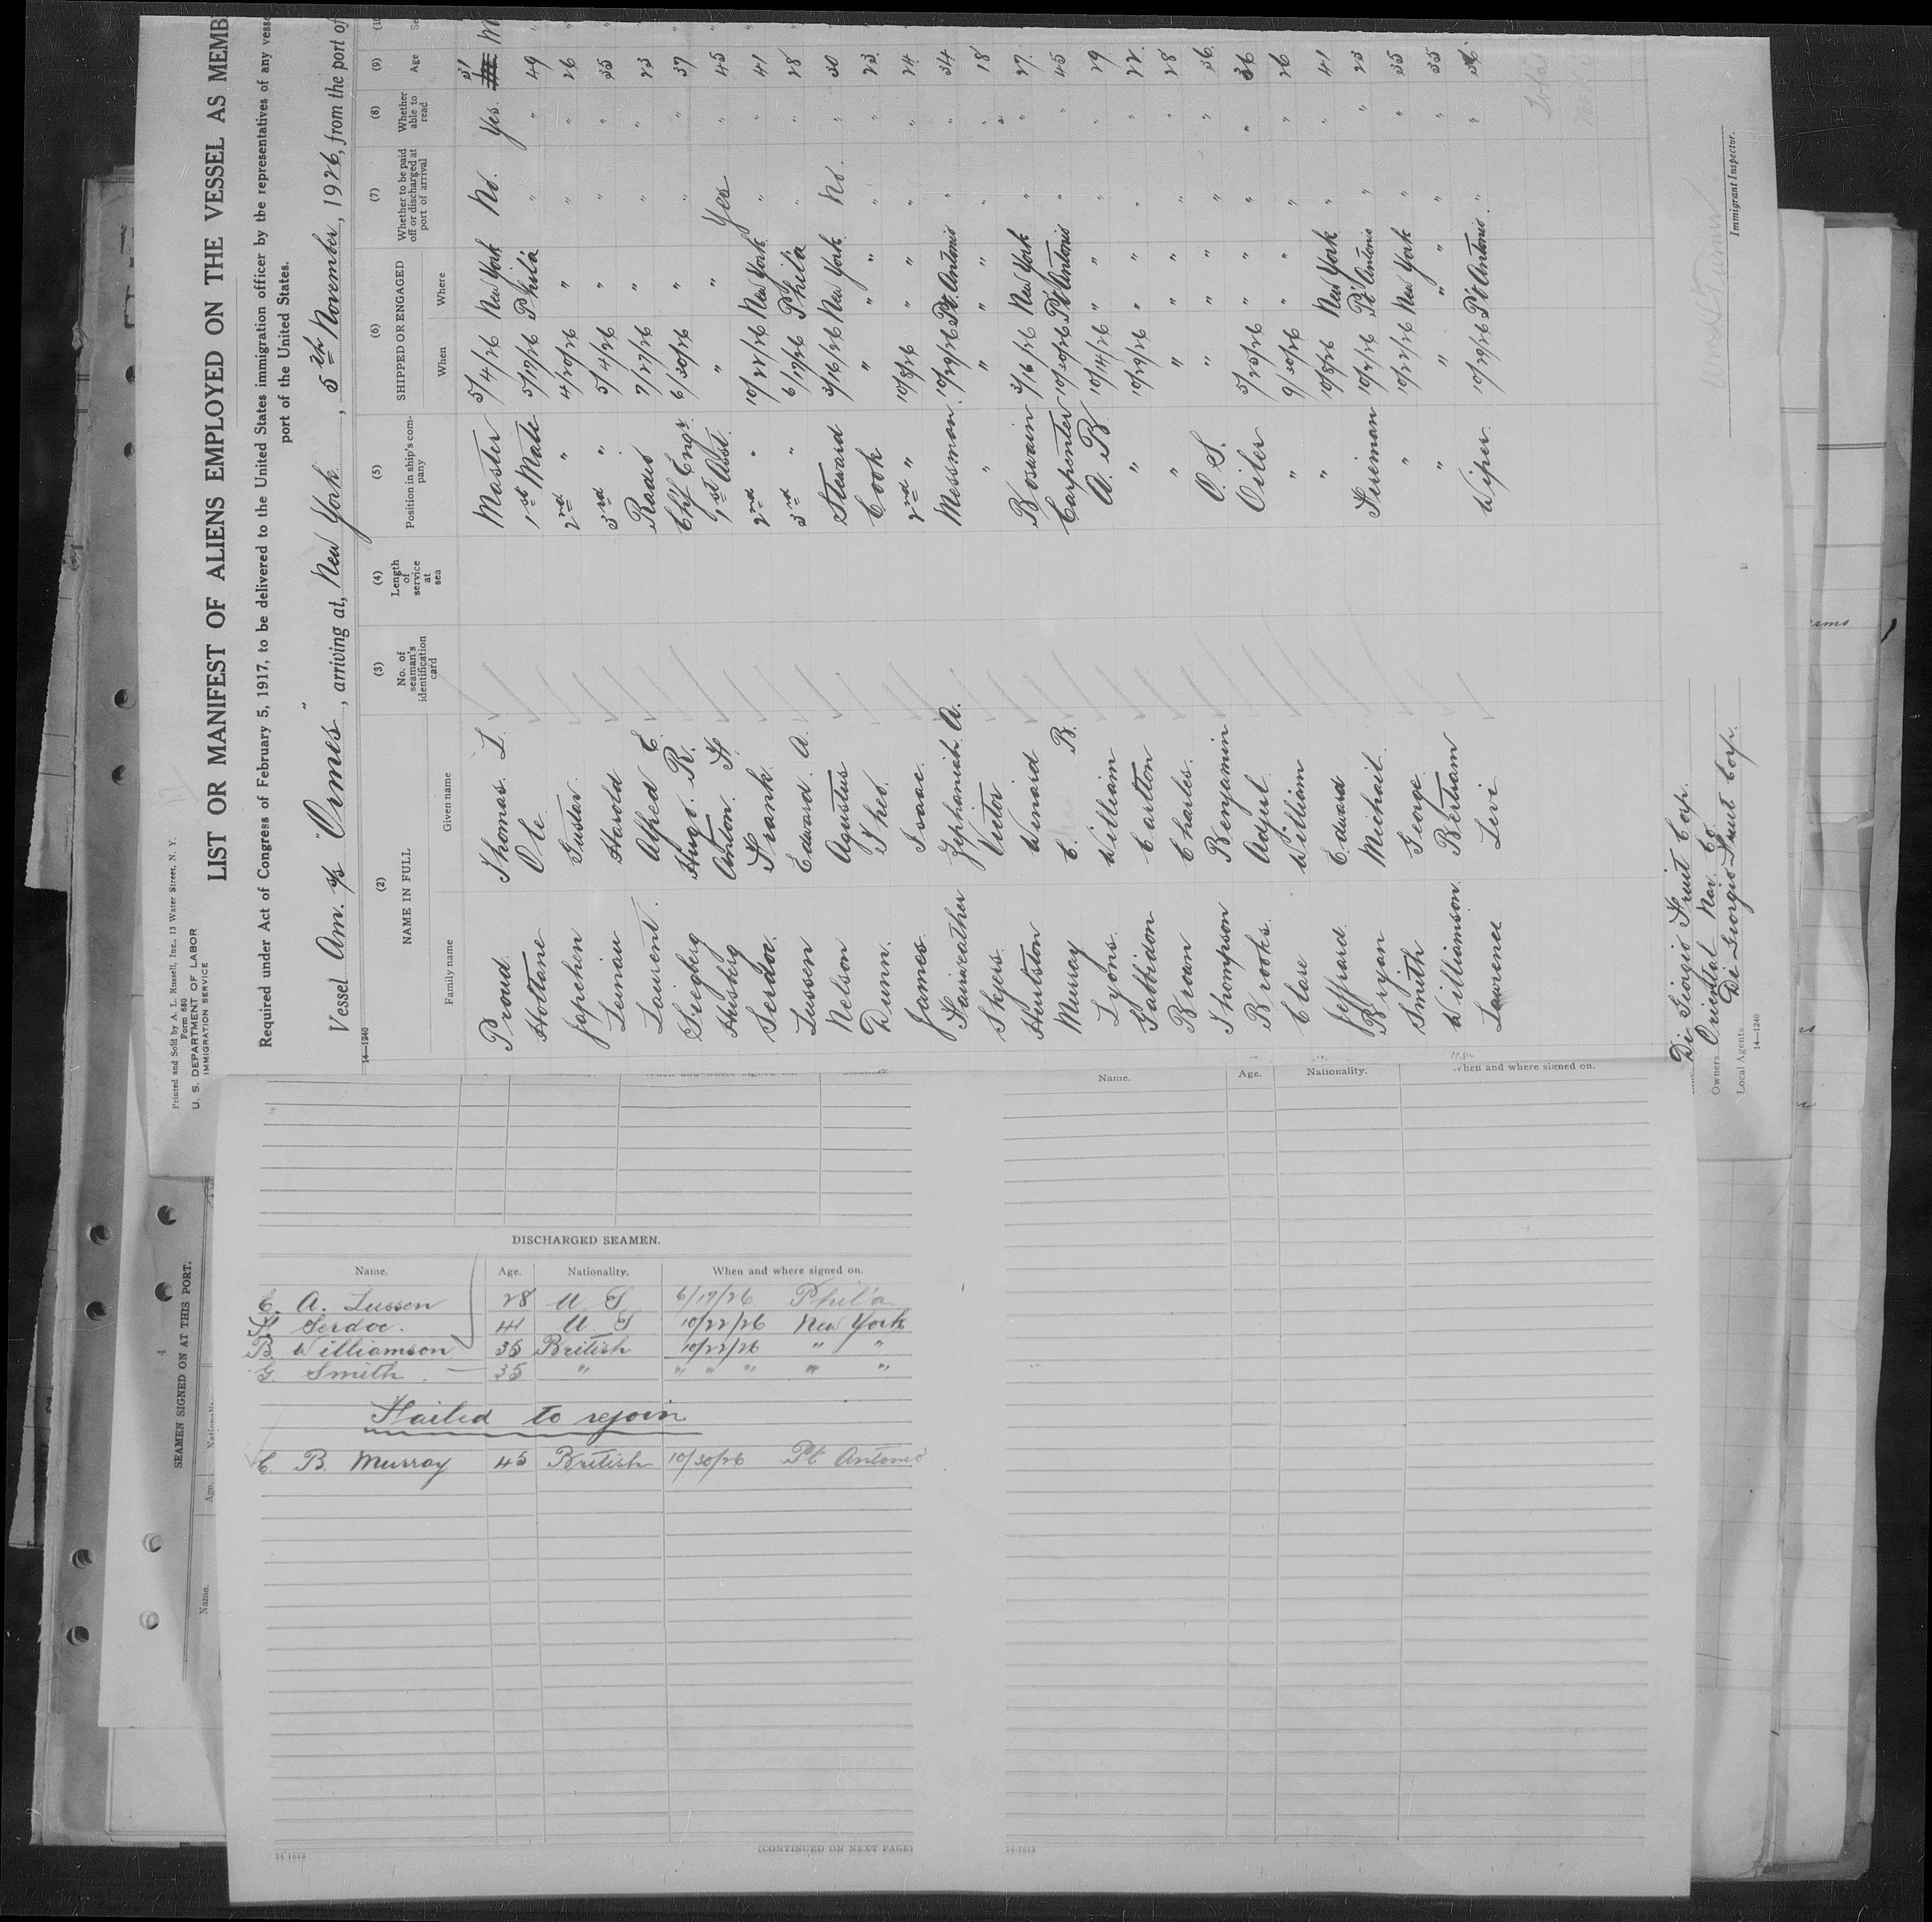 Printed and Sold by A. L. Russell, Inc., 13 Water Street, N. Y.
Form 680
U. S. DEPARTMENT OF LABOR
IMMIGRATION SERVICE
LIST OR MANIFEST OF ALIENS EMPLOYED ON THE VESSEL AS MEMB
Required under Act of Congress of February 5, 1917, to be delivered to the United States immigration officer by the representatives of any vess
port of the United States.
Vessel Am. S/S "Ormes", arriving at, New York, 5th November, 1926, from the port of
14—1240
(2) (3) (4) (5) (6) (7) (8) (9)
NAME IN FULL No. of seaman's identification card Length of service at sea Position in ship's company SHIPPED OR ENGAGED Whether to be paid off or discharged at port of arrival Whether able to read Age
Family name Given name When Where
Proud Thomas L. Master 5/4/26 New York No. Yes. 31
Holtane Ole 1st Mate 5/17/26 Phil'a " " 49
Japchen Gustav 2nd " 4/20/26 " " " 26
Leniau Harold 3rd " 5/4/26 " " " 35
Laurent Alfred E. Radio 7/27/26 " " " 23
Siegberg Hugo. R. Chf Engr. 6/30/26 " " " 37
Husberg Anton H. 1st Asst. " " Yes " 45
Serdoc. Frank 2nd " 10/22/26 New York " " 41
Lussen Edward. A. 3rd " 6/17/26 Phil'a " " 28
Nelson Agustus Steward 3/16/26 New York No. " 30
Dunn. Theo. Cook " " " " 23.
James Isaac. 2nd " 10/8/26 " " " 24
Fairweather Zephaniah A. Messman. 10/29/26 Pt. Antonio " " 34
Skyers Victor " " " " " 18
Hurlston Winard Boswain 3/16/26 New York " " 27.
Murray C. B. Carpenter 10/30/26 Pt Antonio " " 45
Lyons. William A. B. 10/14/26 " " " 29
Gabbidon Carlton " 10/29/26 " " " 22.
Brown Charles. " " " " " 28
Thompson Benjamin O. S. " " " " 36.
Brooks. Adjul Oiler 5/25/26 " " " 36
Clare William " 9/30/26 " " " 26
Jeffrard. Edward " 10/8/26 New York " " 41
Bryan Michail Fireman 10/2/26 Pt Antonio " " 23
Smith George " 10/22/26 New York " " 35
Williamson. Bertram " " " " " 35
Lawrence Levi Wiper 10/29/26 Pt Antonio " "
Di Giorgio Fruit Corp.
Owners Oriental Nav. Co.
Local Agents Di Giorgio Fruit Corp.
14—1240
Immigrant Inspector.
SEAMEN SIGNED ON AT THIS PORT.
Name. Age.
DISCHARGED SEAMEN.
Name. Age. Nationality. When and where signed on.
E. A. Lussen 28 U S 6/17/26 Phil'a
F. Serdoc. 41 U. S 10/22/26 New York
B. Williamson 35 British 10/22/26 " "
G. Smith. 35 " " " " " "
Failed to rejoin
C. B. Murray 45 British 10/30/26 Pt Antonio
14-1513
(CONTINUED ON NEXT PAGE)
Name. Age. Nationality. When and where signed on.
14-1513